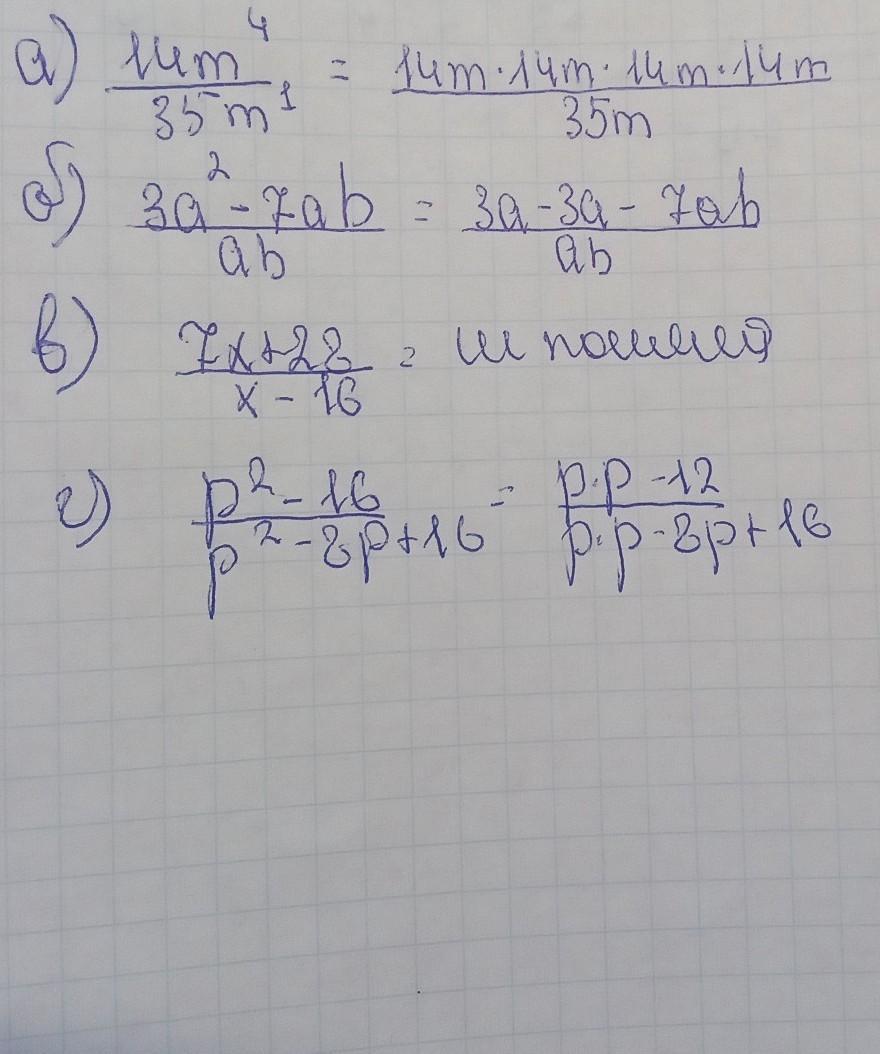 а) 14m⁴/35m¹ = 14m·14m·14m·14m/35m
б) 3a²-7ab/ab = 3a-3a-7ab/ab
в) 7x+28/x-16 =
г) p²-16/p²-8p+16 = p·p-12/p·p-8p+16